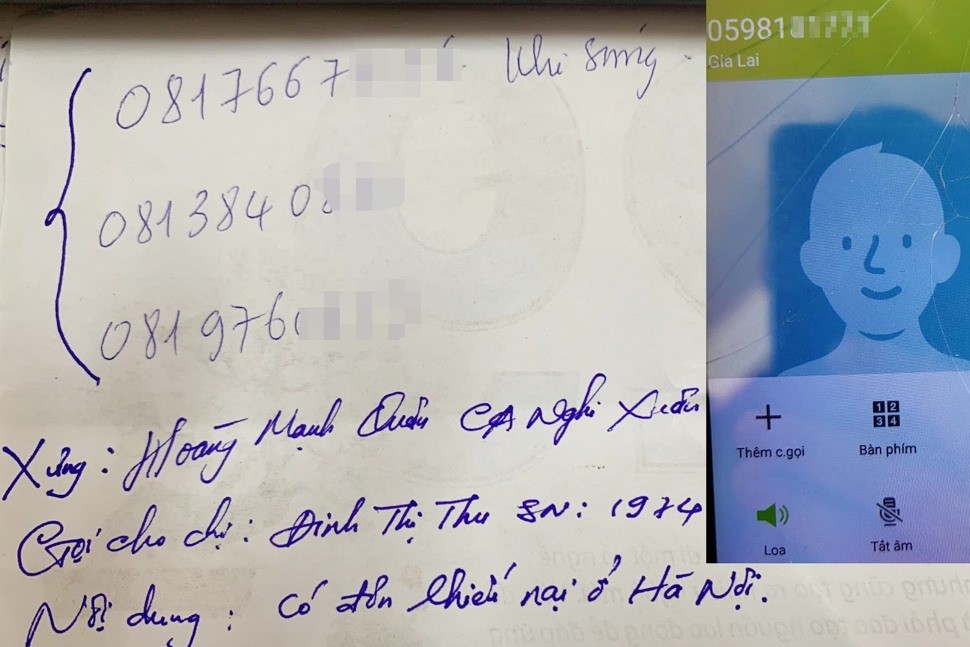 0817667
Khi súng
081384 08
081976
Xưng: Hoàng Mạnh Quân CA Nghi Xuân
Gọi cho chị: Đinh Thị Thu SN: 1974
Nội dung: có đơn khiếu nại ở Hà Nội.
05981
Gia Lai
Thêm c.gọi
1 2
3 4
Bàn phím
Loa
Tắt âm